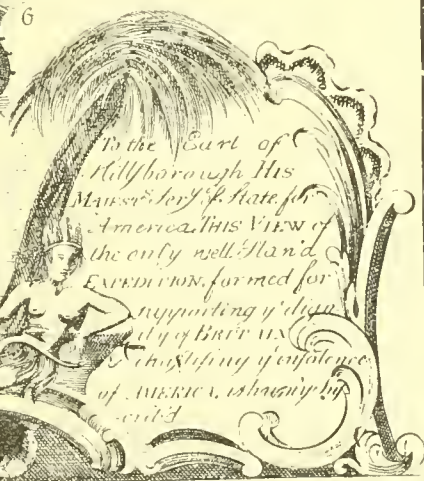 G
To the Earl of
Hillsborough HIS
MAJEST<sup>s</sup> Ser<sup>y</sup> of State for
America. THIS VIEW of
the only well Plan'd
EXPEDITION, formed for
supporting y<sup>e</sup> dign
ity of BRITAIN
& chastising y<sup>e</sup> insolence
of AMERICA, is hum'y